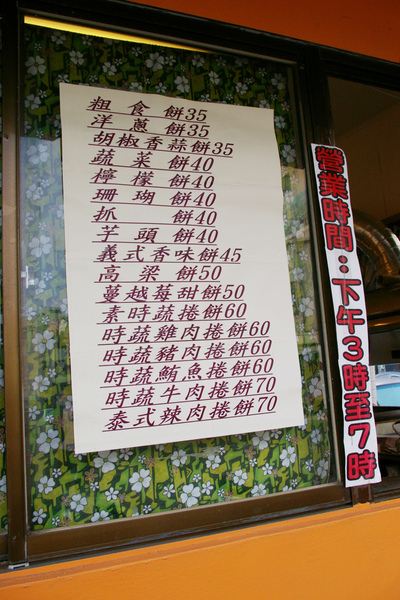 粗食餅35
洋蔥餅35
胡椒香蒜餅35
蔬菜餅40
檸檬餅40
珊瑚餅40
抓餅40
芋頭餅40
義式香味餅45
高梁餅50
蔓越莓甜餅50
素時蔬捲餅60
時蔬雞肉捲餅60
時蔬豬肉捲餅60
時蔬鮪魚捲餅60
時蔬牛肉捲餅70
泰式辣肉捲餅70
營業時間：下午3時至7時